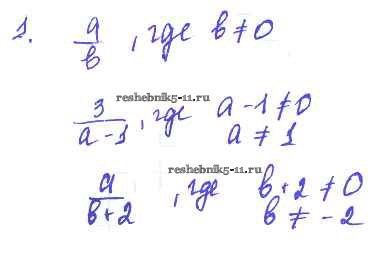 1. a/в, где в ≠ 0
reshebnik5-11.ru
3/(a-1), где a-1 ≠ 0
a ≠ 1
reshebnik5-11.ru
a/(в+2), где в+2 ≠ 0
в ≠ -2